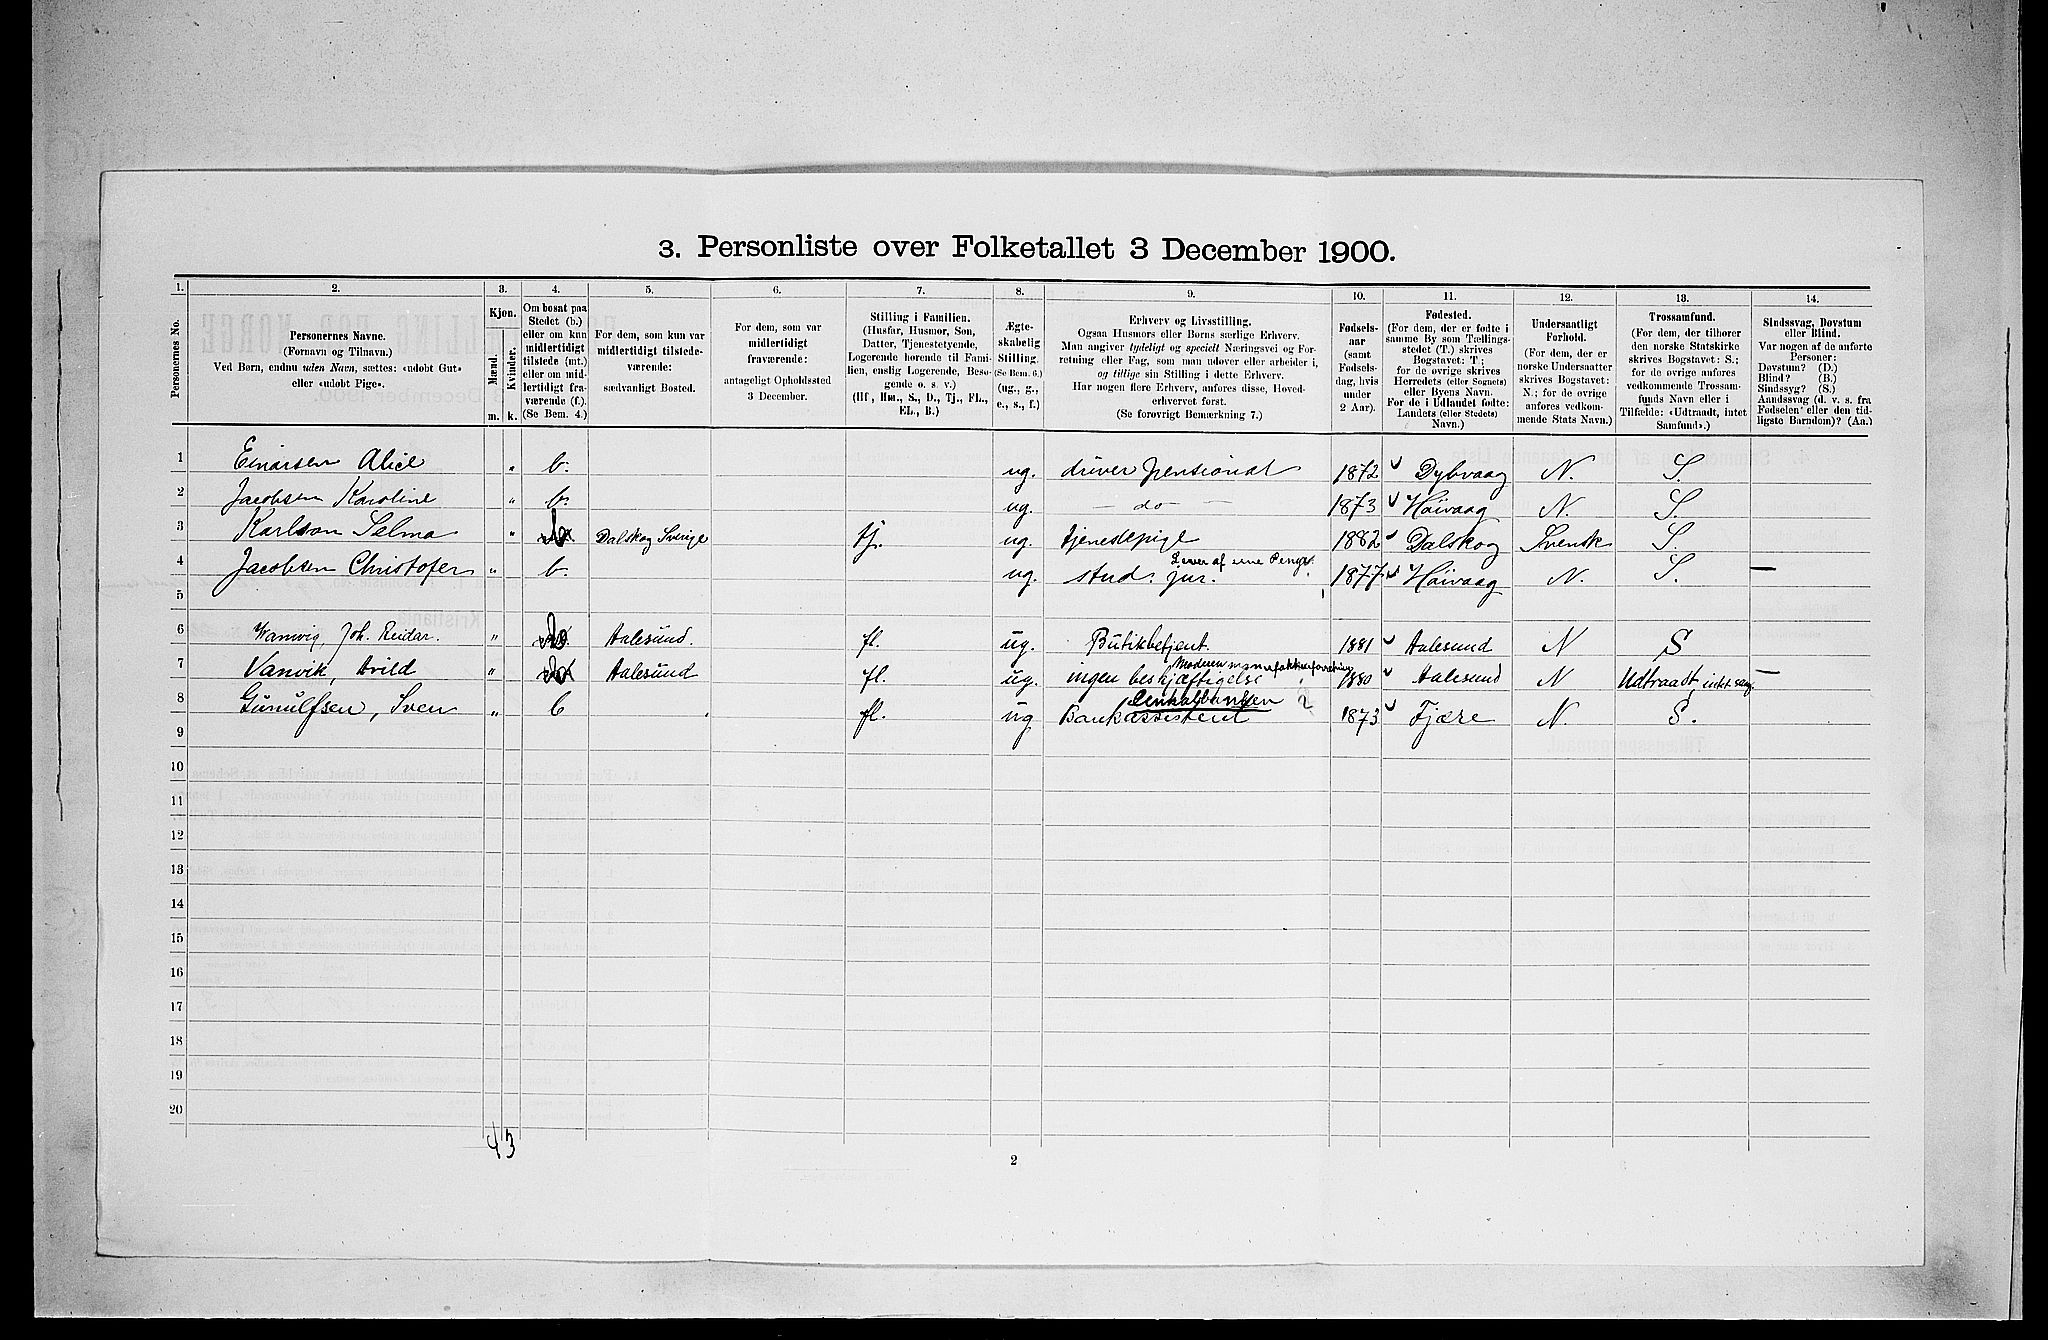 3. Personliste over Folketallet 3 December 1900.
1. 2. 3. 4. 5. 6. 7. 8. 9. 10. 11. 12. 13. 14.
Personernes No.
Personernes Navne.
(Fornavn og Tilnavn.)
Ved Børn, endnu uden Navn, sættes: «udøbt Gut»
eller «udøbt Pige».
Kjøn.
Mænd.
Kvinder.
m. k.
Om bosat paa
Stedet (b.)
eller om kun
midlertidigt
tilstede (mt.)
eller om mid-
lertidigt fra-
værende (f.).
(Se Bem. 4.)
For dem, som kun var
midlertidigt tilstede-
værende:
sædvanligt Bosted.
For dem, som var
midlertidigt
fraværende:
antageligt Opholdssted
3 December.
Stilling i Familien.
(Husfar, Husmor, Søn,
Datter, Tjenestetyende,
Logerende hørende til Fami-
lien, enslig Logerende, Besø-
gende o. s. v.)
(Hf., Hm., S., D., Tj., FL.,
EL., B.)
Ægte-
skabelig
Stilling.
(Se Bem. 6.)
(ug., g.,
e., s., f.)
Erhverv og Livsstilling.
Ogsaa Husmors eller Børns særlige Erhverv.
Man angiver tydeligt og specielt Næringsvei og For-
retning eller Fag, som man udøver eller arbeider i,
og tillige sin Stilling i dette Erhverv.
Har nogen flere Erhverv, anføres disse, Hoved-
erhvervet først.
(Se forøvrigt Bemærkning 7.)
Fødsels-
aar
(samt
Fødsels-
dag, hvis
under
2 Aar).
Fødested.
(For dem, der er fødte i
samme By som Tællings-
stedet (T.) skrives
Bogstavet: T.;
for de øvrige skrives
Herredets (eller Sognets)
eller Byens Navn.
For de i Udlandet fødte:
Landets (eller Stedets)
Navn.)
Undersaatligt
Forhold.
(For dem, der er
norske Undersaatter
skrives Bogstavet:
N.; for de øvrige
anføres vedkom-
mende Stats Navn.)
Trossamfund.
(For dem, der tilhører
den norske Statskirke
skrives Bogstavet: S.;
for de øvrige anføres
vedkommende Trossam-
funds Navn eller i
Tilfælde: «Udtraadt, intet
Samfund».)
Sindssvag, Døvstum
eller Blind.
Var nogen af de anførte
Personer:
Døvstum? (D.)
Blind? (B.)
Sindssyg? (S.)
Aandssvag (d. v. s. fra
Fødselen eller den tid-
ligste Barndom)? (Aa.)
1 Einarsen Alice " b. ug. driver pensionat 1872 Dybvaag N. S.
2 Jacobsen Karoline " b. ug. — do — 1873 Høivaag N. S.
3 Karlson Selma " b Dalskog Sverige tj. ug. tjenestepige 1882 Dalskog Svensk S.
Lever af sine Penge.
4 Jacobsen Christofer " b. ug. stud. jur. 1877 Høivaag N. S. —
5
6 Wanvig, Joh. Reidar. " b Aalesund. fl. ug. Butikbetjent. 1881 Aalesund N S
7 Vanvik, Arild " b Aalesund fl. ug. ingen beskjæftigelse 1880 Aalesund N Udtraadt, intet samf. —
Centralbanken
8 Gunulfsen, Sven " b fl. ug Bankassistent 1873 Fjære N. S.
9
10
11
12
13
14
15
16
17
18
19
20
4 3
2